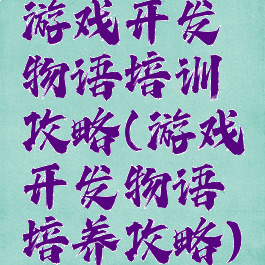 游戏开发
物语培训
攻略(游戏
开发物语
培养攻略)